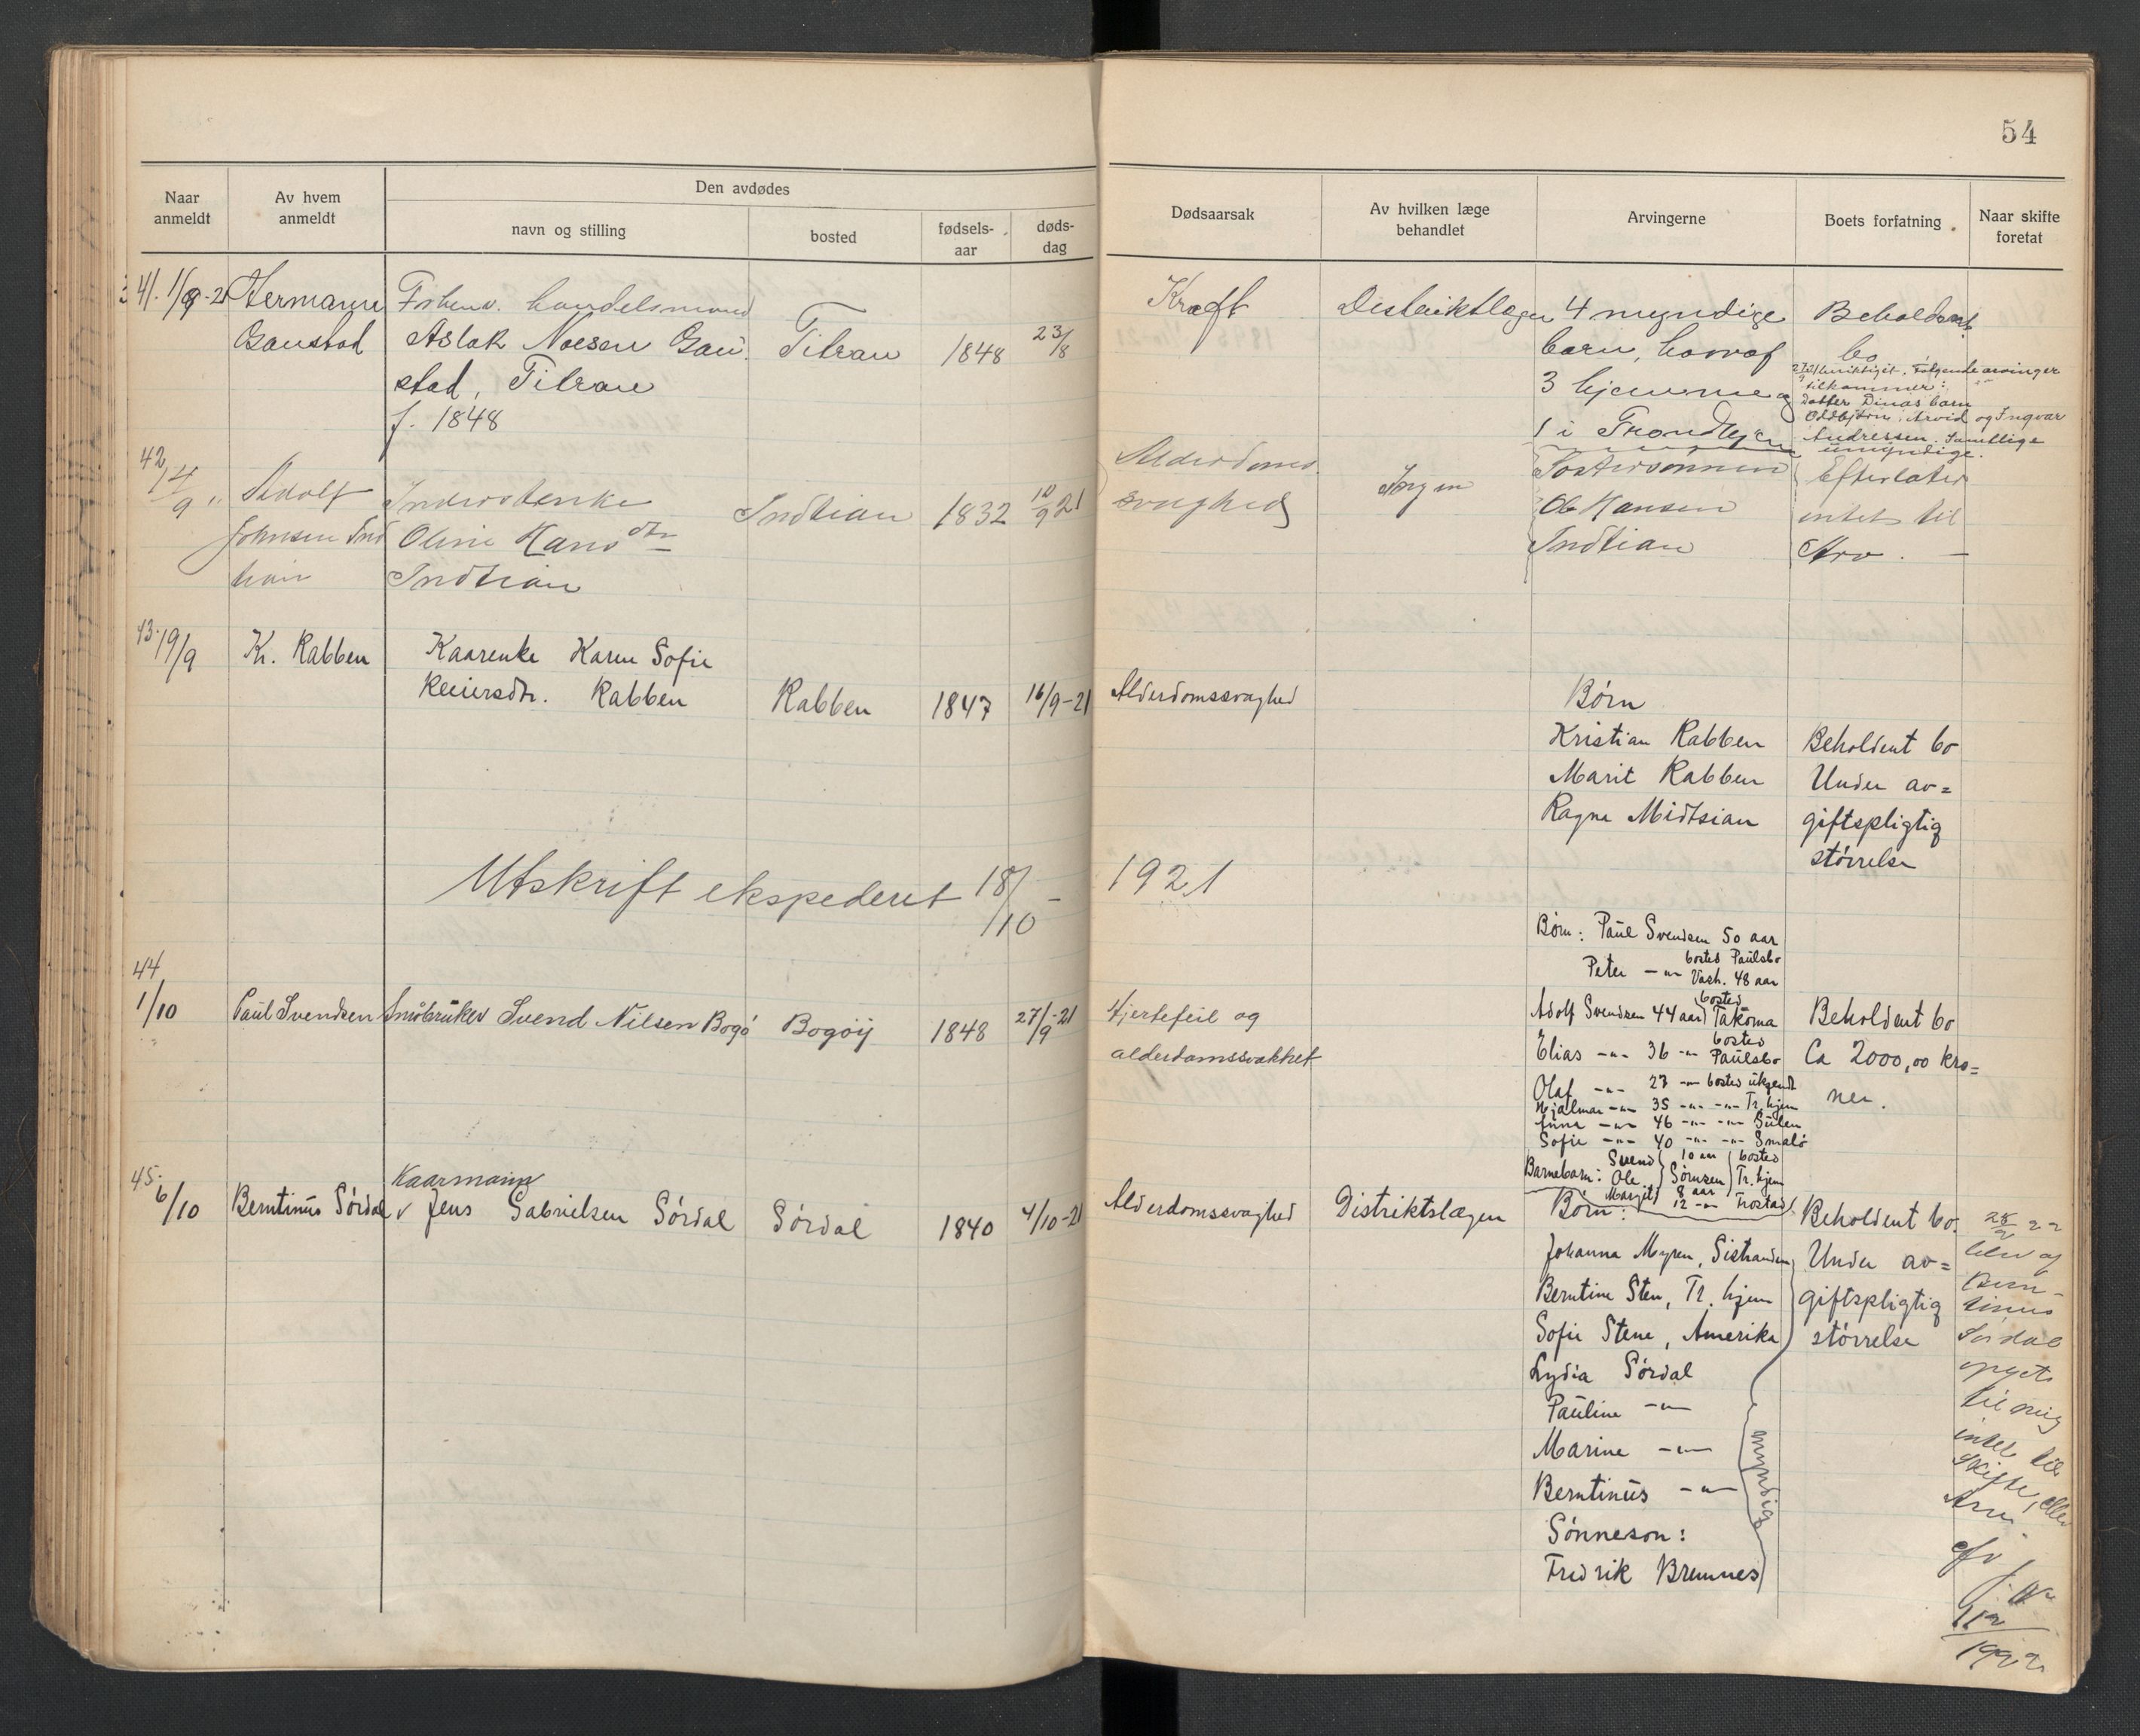 54
Naar anmeldt
Av hvem anmeldt
Den avdødes
navn og stilling
bosted
fødsels-aar
døds-dag
Dødsaarsak
Av hvilken læge behandlet
Arvingerne
Boets forfatning
Naar skifte foretat
41. 1/9-21
Hermann
Gaustad
handelsmand
Aslak Noesen Gau-
stad, Titran
f. 1848
Titran
1848
23/8
Kræft
Distriktslægen
4 myndige
børn, hvorav
3 hjemme og
1 i Trondhjem
Beholdent
bo
Følgende arvinger
tilkommer:
Datter Dinas barn
Oddbjørn, Arvid og Ingvar
Andressen. Samtlige
umyndige.
42
14/9 "
Adolf
Johnsen Ind
tian
Inderstenke
Oline Hansdtr
Indtian
Indtian
1832
10/9 21
Alderdoms
svaghed
Ingen
Fostersønnen
Ole Hansen
Indtian
Efterlater
intet til
Arv. —
43. 19/9
K. Rabben
Kaarenke Karen Sofie
Reiersdtr. Rabben
Rabben
1847
16/9-21
Alderdomssvaghed
Børn
Kristian Rabben
Marit Rabben
Ragna Midtsian
Beholdent bo
Under av=
giftspligtig
størrelse
Utskrift ekspedert 18/10 - 1921
44
1/10
Paul Svendsen
Småbruker Svend Nilsen Bogø
Bogøy
1848
27/9-21
Hjertefeil og
alderdomssvakhet
Børn: Paul Svendsen 50 aar
bosted Paulsbo
Peter -"- Vash. 48 aar
Adolf Svendsen 44 aar bosted Takoma
Elias -"- 36 -"- bosted Paulsbo
Olaf -"- 27 -"- bosted ukjendt
Hjalmar -"- 35 -"- -"- Tr.hjem
Anna -"- 46 -"- -"- Sulen
Sofie -"- 40 -"- -"- Smalø
Barnebarn: Svend 10 aar bosted
Ole Sørnsen Tr.hjem
8 aar
Margit 12 -"- Frostad
Beholdent bo
Ca 2000,00 kro=
ner.
45.
6/10
Berntinus Sørdal
Kaarmann
v Jens Gabrielsen Sørdal
Sørdal
1840
4/10-21
Alderdomssvaghed
Distriktslægen
Børn:
Johanna Myren, Sistranden
Berntine Sten, Tr. hjem
Sofie Stene, Amerika
Lydia Sørdal
Pauline -"-
Marine -"-
Berntinus -"-
Sønneson:
Fredrik Bremnes
myndige
Beholdent bo.
Under av=
giftspligtig
størrelse
22
blev af
Bern-
tinus
Sørdal
opgit
til mig
intet til
Skifte, eller
Arv
1922